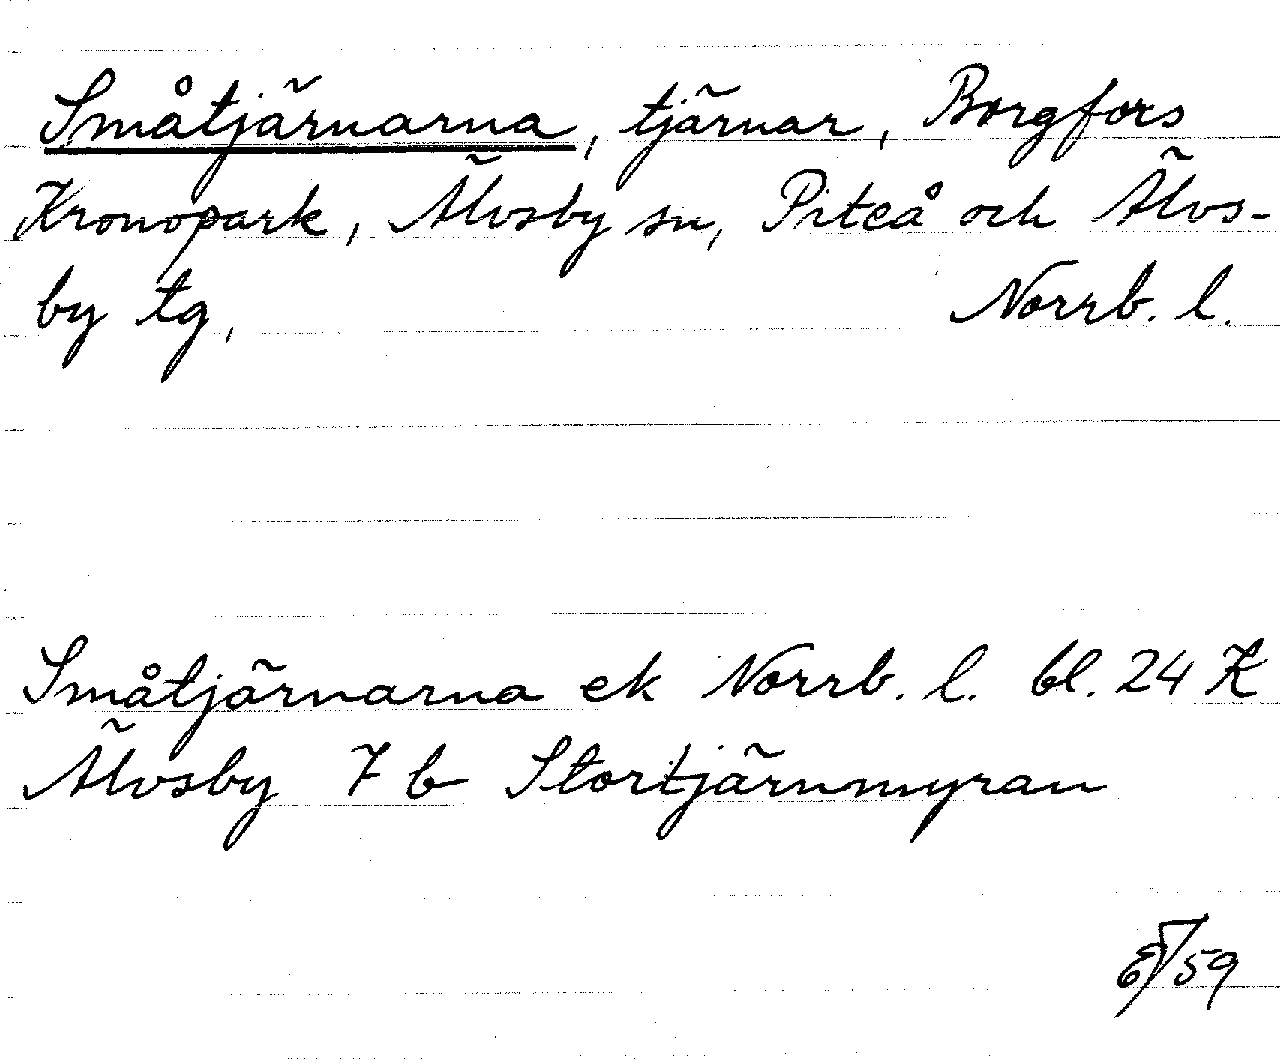 Småtjärnarna, tjärnar, Borgfors
Kronopark, Älvsby sn, Piteå och Älvs-
by tg, Norrb. l.
Småtjärnarna ek Norrb. l. bl. 24 K
Älvsby 7 b Stortjärnmyran
/59